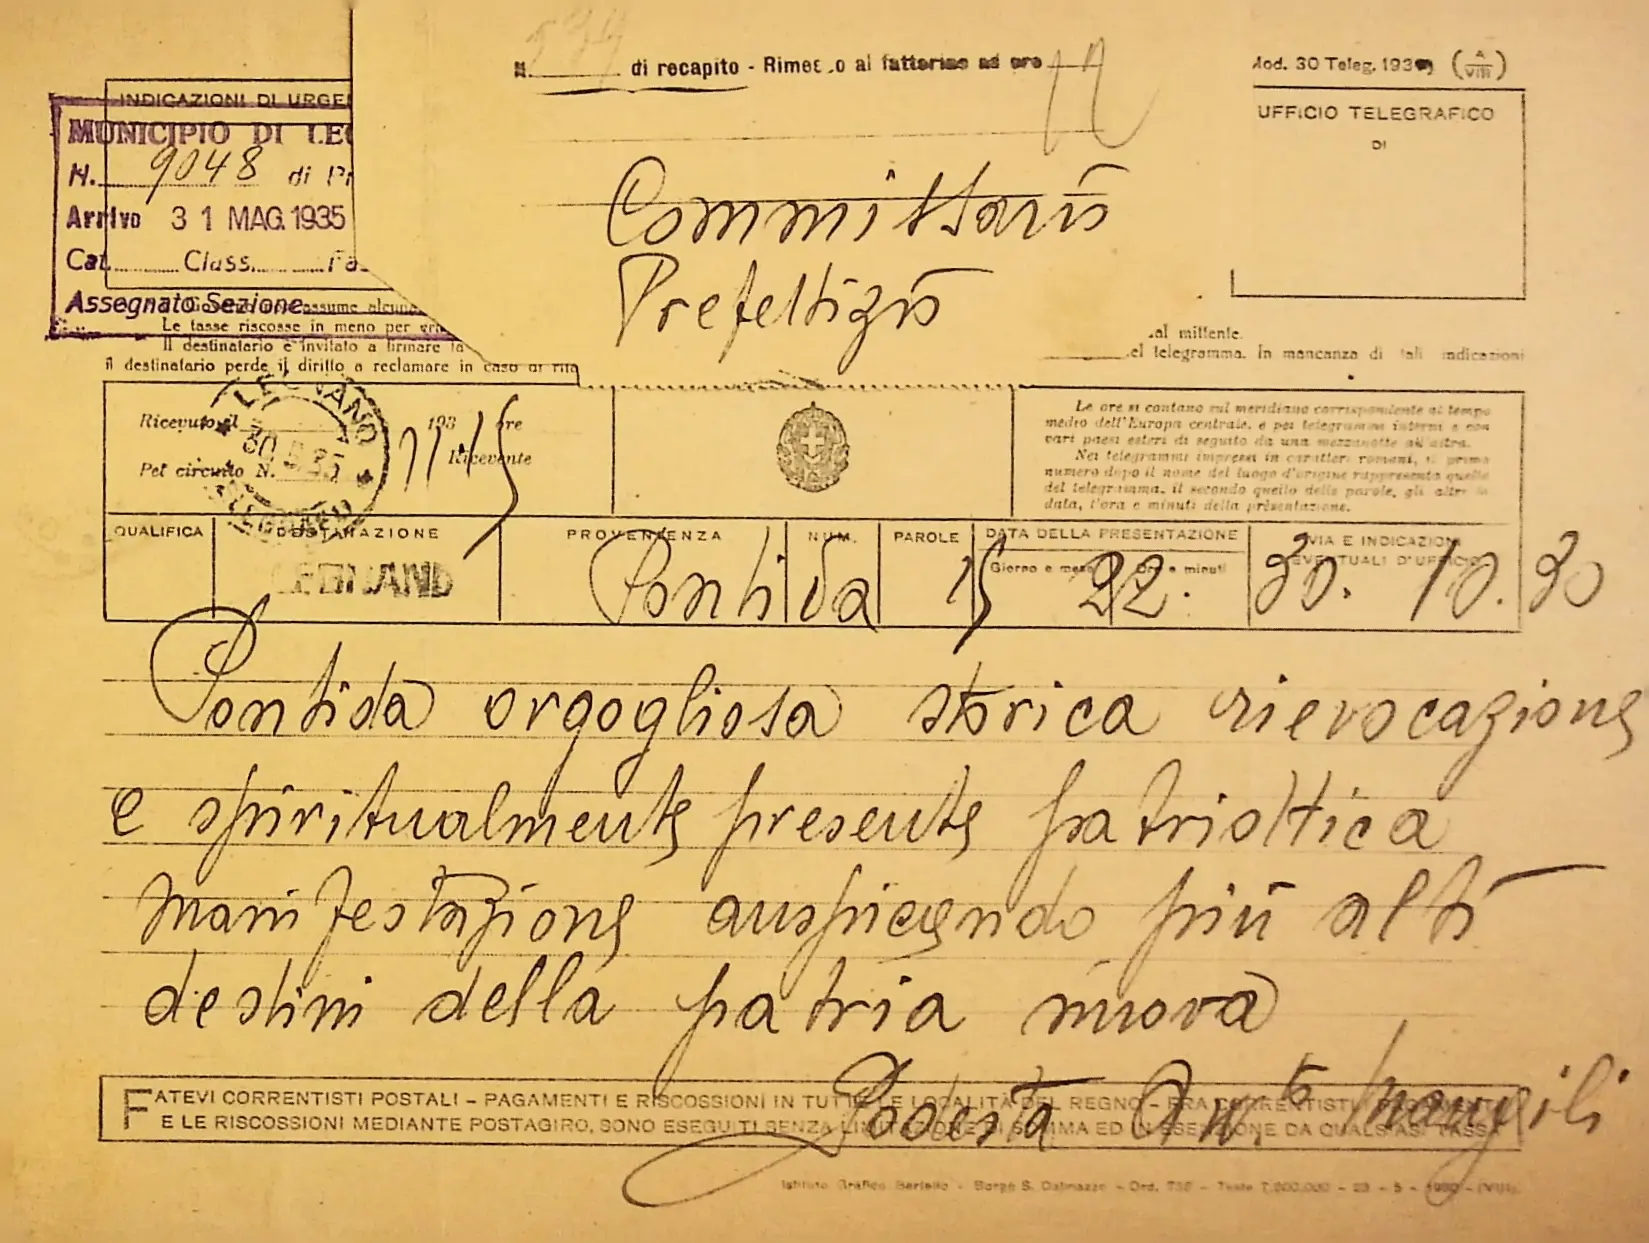 N. di recapito - Rimesso al fattorino ad ore 12
Mod. 30 Teleg. 193 (A VIII)
INDICAZIONI DI URGE
UFFICIO TELEGRAFICO
DI
MUNICIPIO DI LE
N. 9048 di Pr
Arrivo 31 MAG. 1935
Cat. Class. Fa
Assegnato Sezione
assume alcuna
Le tasse riscosse in meno per
Il destinatario è invitato a firmare la
il destinatario perde il diritto a reclamare in caso di rita
Commissario
Prefettizio
al mittente.
el telegramma. In mancanza di tali indicazioni
Ricevuto il 193 ore 11.15
Pel circuito N. Ricevente
LEGNANO
30.5.35
TELEGRAFO
Le ore si contano sul meridiano corrispondente al tempo
medio dell'Europa centrale, e pei telegrammi interni e con
vari paesi esteri di seguito da una mezzanotte all'altra.
Nei telegrammi impressi in caratteri romani, il primo
numero dopo il nome del luogo d'origine rappresenta quello
del telegramma, il secondo quello delle parole, gli altri la
data, l'ora e minuti della presentazione.
QUALIFICA DESTINAZIONE PROVENIENZA NUM. PAROLE DATA DELLA PRESENTAZIONE VIA E INDICAZIONI
Giorno e mese Ore e minuti EVENTUALI D'UFFICIO
LEGNANO Pontida 15 22. 30. 10.30
Pontida orgogliosa storica rievocazione
e spiritualmente presente patriottica
manifestazione auspicando più alti
destini della patria nuova
Podestà Ant. Mangili
FATEVI CORRENTISTI POSTALI - PAGAMENTI E RISCOSSIONI IN TUTTE LE LOCALITÀ DEL REGNO - FRA CORRENTISTI
E LE RISCOSSIONI MEDIANTE POSTAGIRO, SONO ESEGUITI SENZA LIMITAZIONE DI SOMMA ED IN ESENZIONE DA QUALSIASI TASSA
Istituto Grafico Bertello - Borgo S. Dalmazzo - Ord.